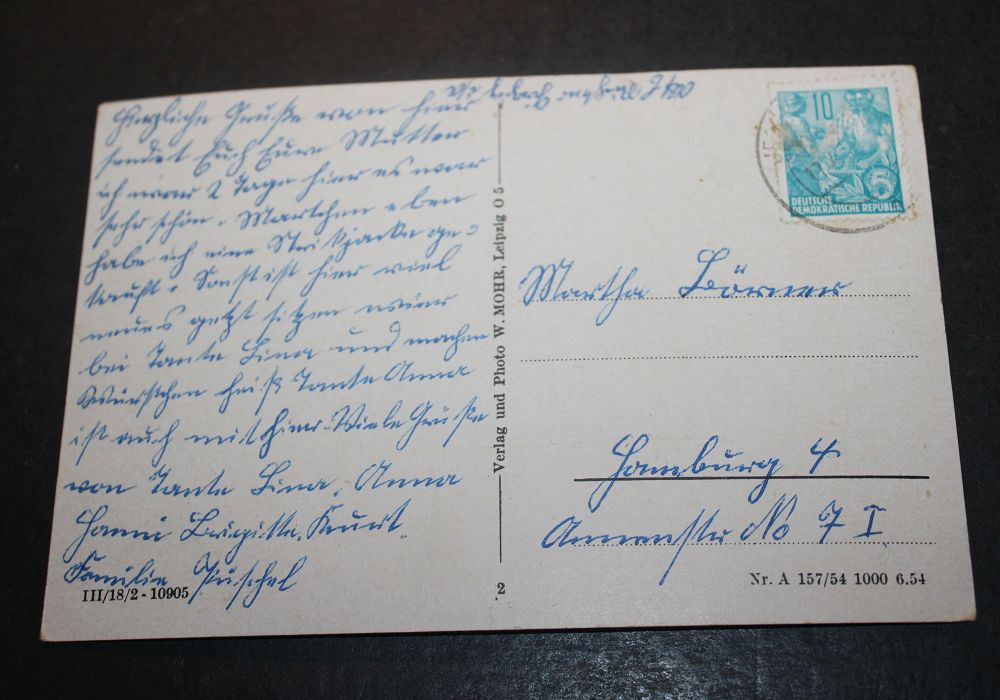 Herzliche Grüße von hier
sendet Euch Eure Mutter
ich war 2 Tage hier es war
sehr schön. Martchen eben
habe ich eine Strickjacke ge=
kauft. Sonst ist hier viel
neues jetzt sitzen wir
bei Tante Lina und machen
Würstchen heiß Tante Anna
ist auch mit hier. Viele Grüße
von Tante Lina, Anna
Hanni Brigitte, Kurt.
Familie Püschel
III/18/2 - 10905
Verlag und Photo W. MOHR, Leipzig O 5
2
10
5
DEUTSCHE
DEMOKRATISCHE REPUBLIK
Martha Börner
Hamburg 4
Annenstr No 7 I.
Nr. A 157/54 1000 6.54